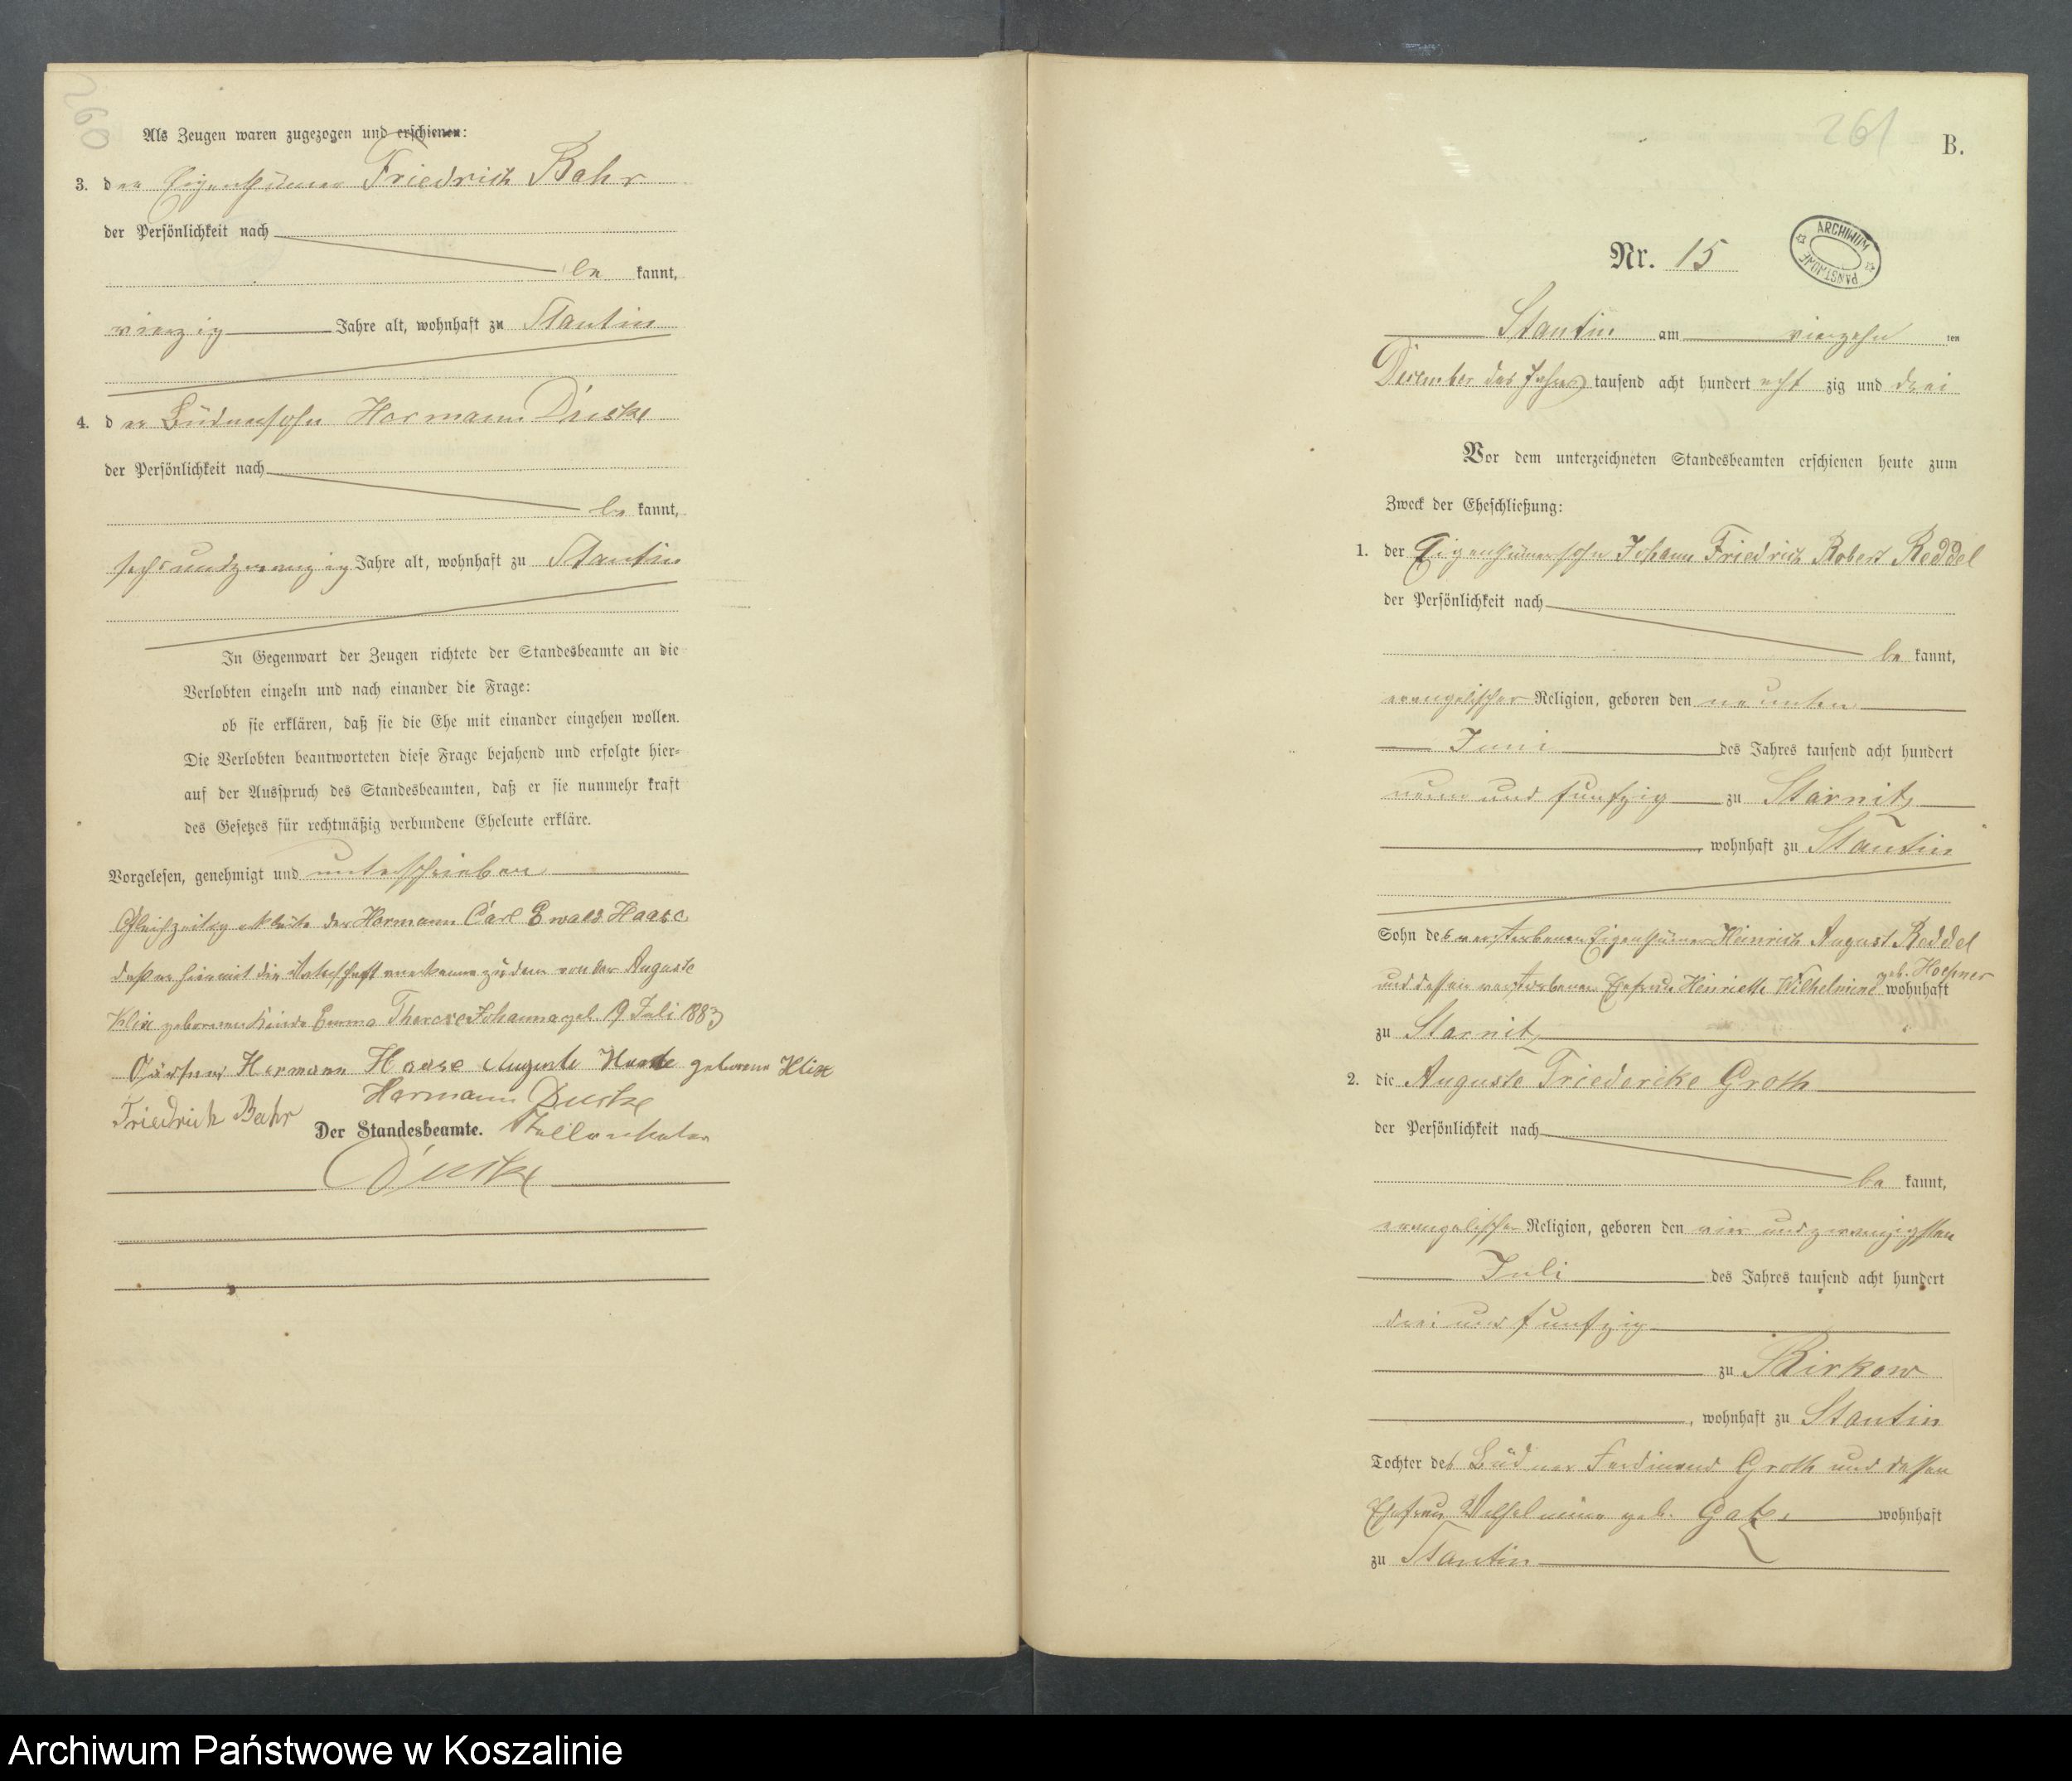 260
Als Zeugen waren zugezogen und erschienen:
3. der Eigenthümer Friedrich Bahr
der Persönlichkeit nach
be kannt,
vierzig Jahre alt, wohnhaft zu Stantin
4. der Büdnersohn Hermann Duske
der Persönlichkeit nach
be kannt,
sechsundzwanzig Jahre alt, wohnhaft zu Stantin
In Gegenwart der Zeugen richtete der Standesbeamte an die
Verlobten einzeln und nach einander die Frage:
ob sie erklären, daß sie die Ehe mit einander eingehen wollen.
Die Verlobten beantworteten diese Frage bejahend und erfolgte hier-
auf der Ausspruch des Standesbeamten, daß er sie nunmehr kraft
des Gesetzes für rechtmäßig verbundene Eheleute erkläre.
Vorgelesen, genehmigt und unterschrieben
Gleichzeitig erklärte der Hermann Carl Ewald Haase
daß er hiermit die Vaterschaft anerkenne zu dem von der Auguste
Klix geborenen Kinde Emma Therese Johanna geb. 19 Juli 1883
Hermann Haase Auguste Haase geborene Klix
Friedrich Bahr Hermann Duske
Der Standesbeamte. Stellvertreter
Duske
261
B.
ARCHIWUM PAŃSTWOWE
Nr. 15
Stantin am vierzehn ten
Dezember des Jahres tausend acht hundert acht zig und drei
Vor dem unterzeichneten Standesbeamten erschienen heute zum
Zweck der Eheschließung:
1. der Eigenthümersohn Johann Friedrich Robert Reddel
der Persönlichkeit nach
be kannt,
evangelischer Religion, geboren den neunten
Juni des Jahres tausend acht hundert
neun und funfzig zu Starnitz
, wohnhaft zu Stantin
Sohn des verstorbenen Eigenthümer Heinrich August Reddel
und dessen verstorbenen Ehefrau Henriette Wilhelmine geb. Hoepner wohnhaft
zu Starnitz
2. die Auguste Friedericke Groth
der Persönlichkeit nach
be kannt,
evangelischer Religion, geboren den vier und zwanzigsten
Juli des Jahres tausend acht hundert
drei und funfzig
zu Birkow
, wohnhaft zu Stantin
Tochter des Büdner Ferdinand Groth und dessen
Ehefrau Wilhelmine geb. Gatz wohnhaft
zu Stantin
Archiwum Państwowe w Koszalinie